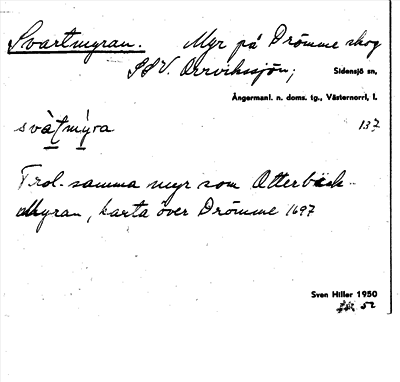 Svartmyran. Myr på Drömme skog
SSV. Arrviksjön; Sidensjö sn,
Ångermanl. n. doms. tg., Västernorrl, l.
svàt̠mý̠ra 137
Trol. samma myr som Otterbäck-
Myran, karta över Drömme 1697
Sven Hiller 1950
52